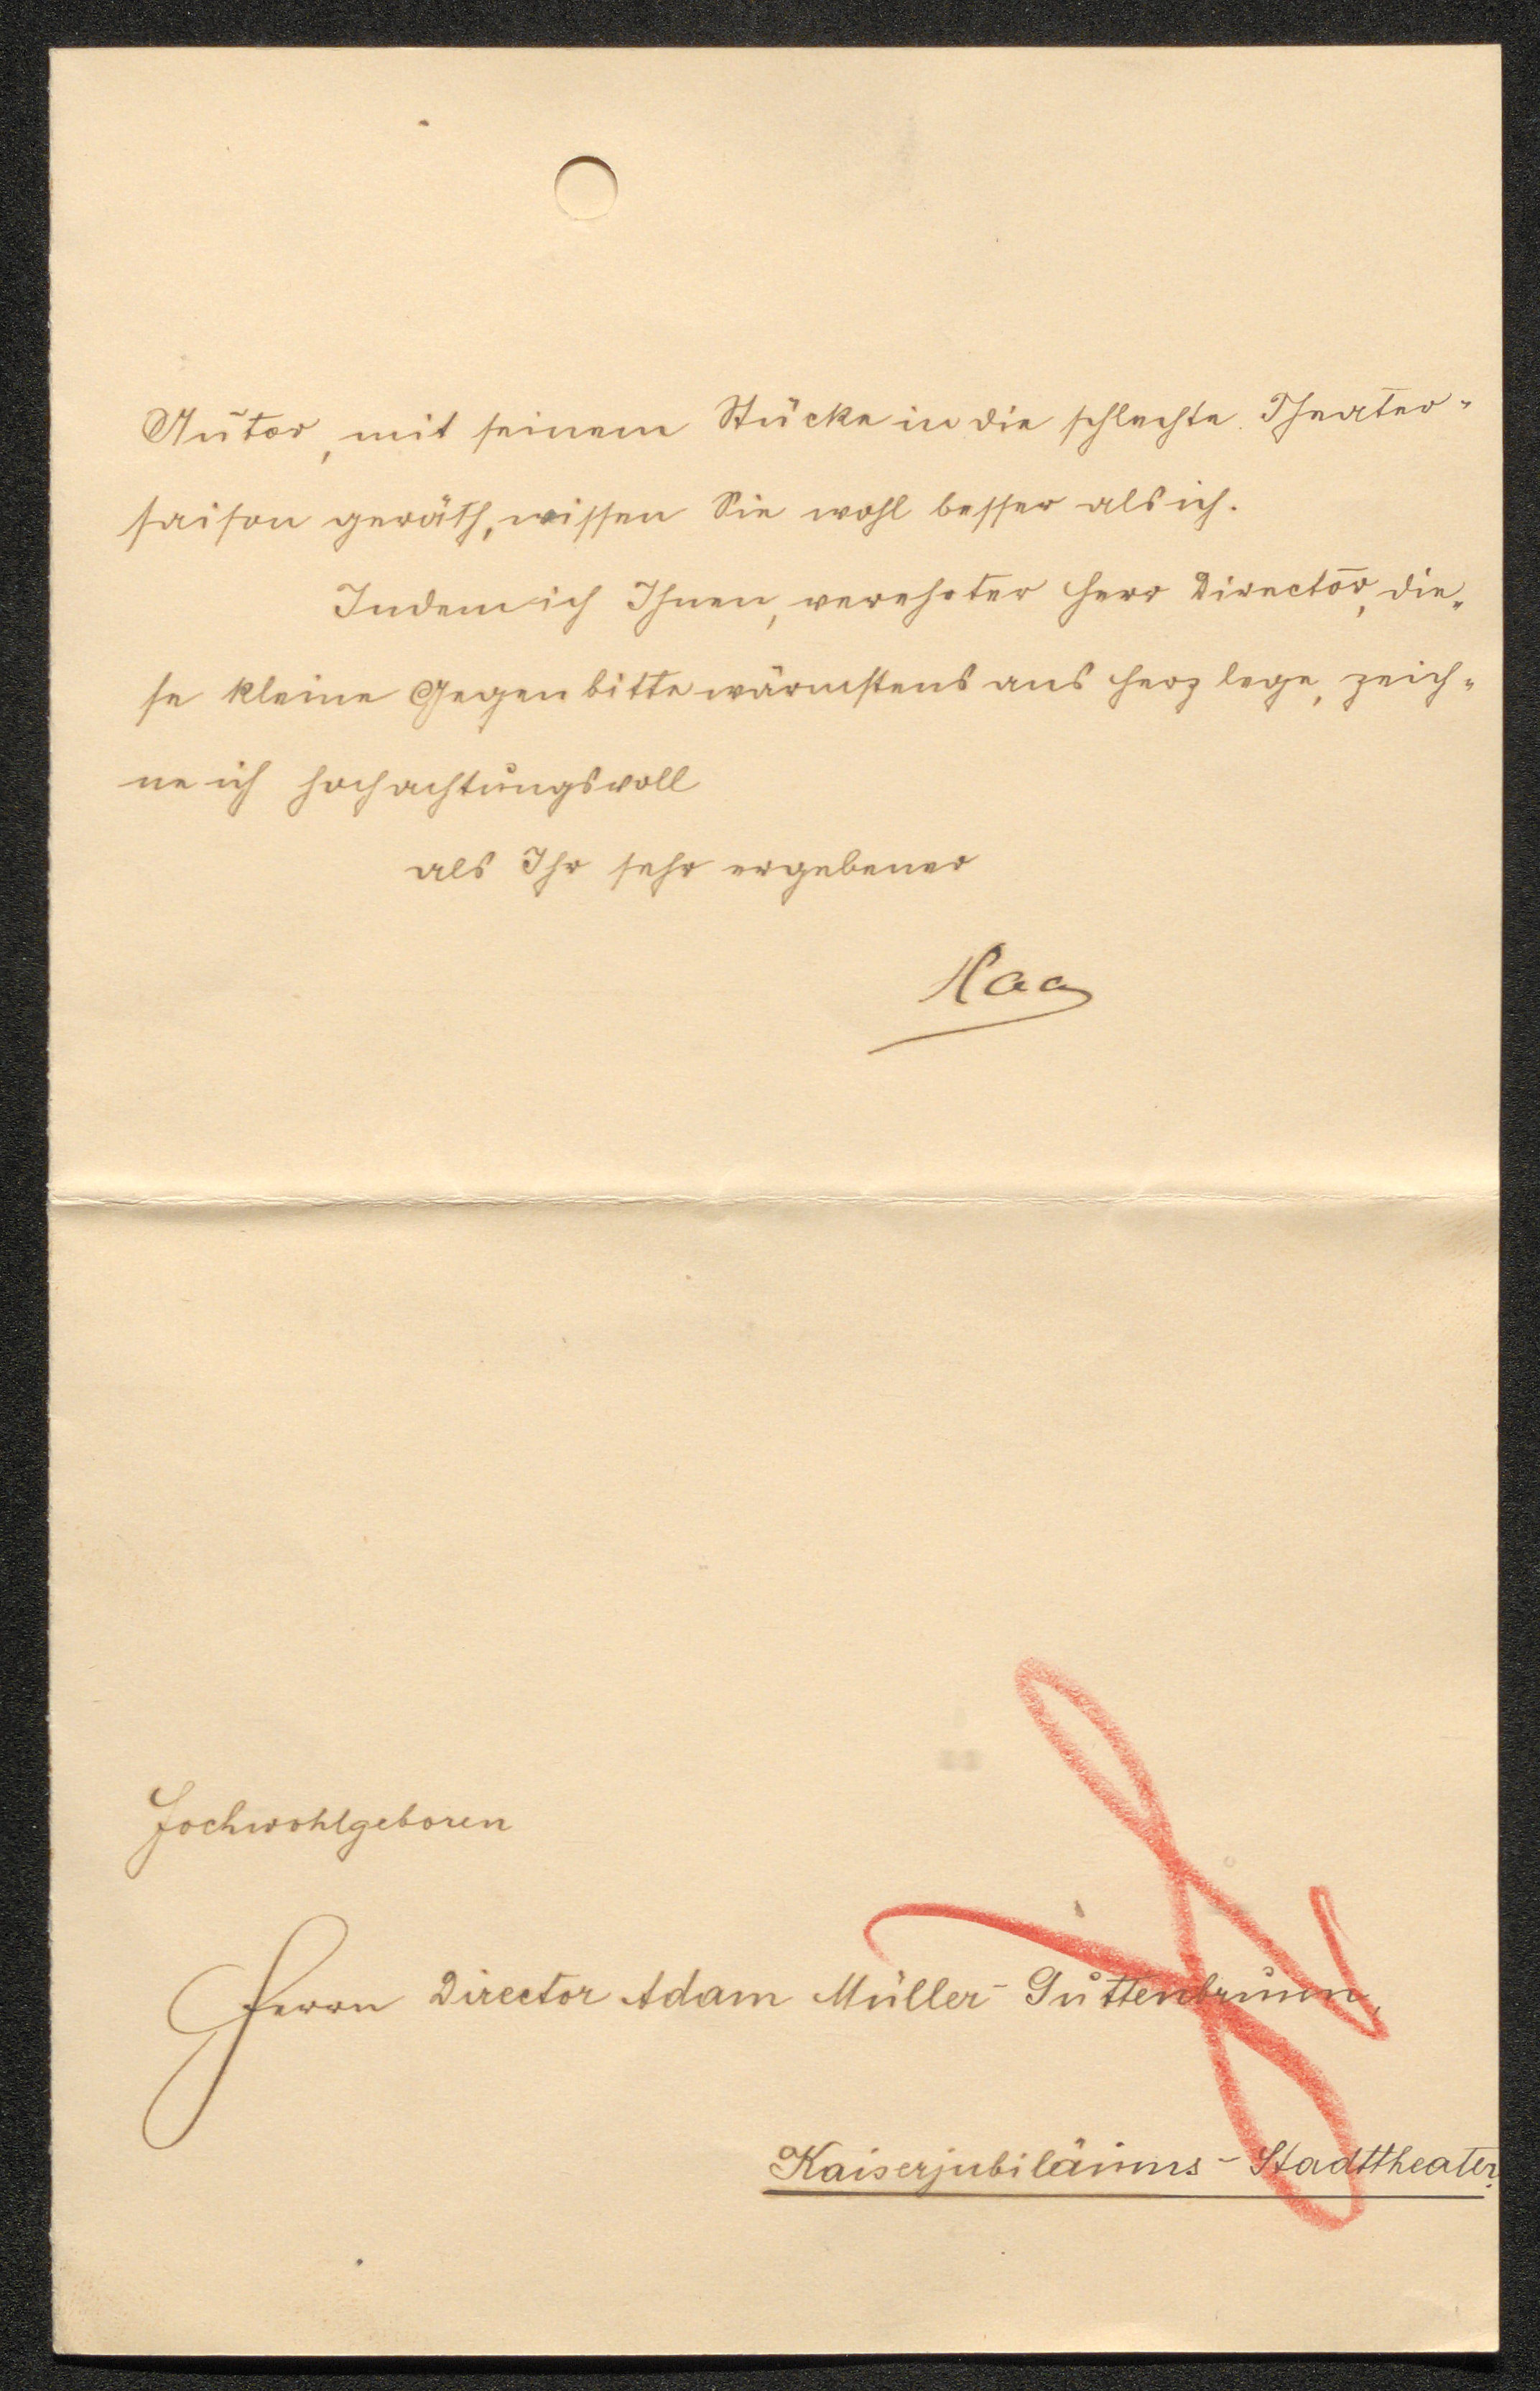 Autor, mit seinem Stücke in die schlechte Theater-
saison geräth, wissen Sie wohl besser als ich.
Indem ich Ihnen, verehrter Herr Director, die-
se kleine Gegenbitte wärmstens ans Herz lege, zeich-
ne ich hochachtungsvoll
als Ihr sehr ergebener
Haas
Hochwohlgeboren
Herrn Director Adam Müller-Guttenbrunn,
Kaiserjubiläums-Stadttheater.